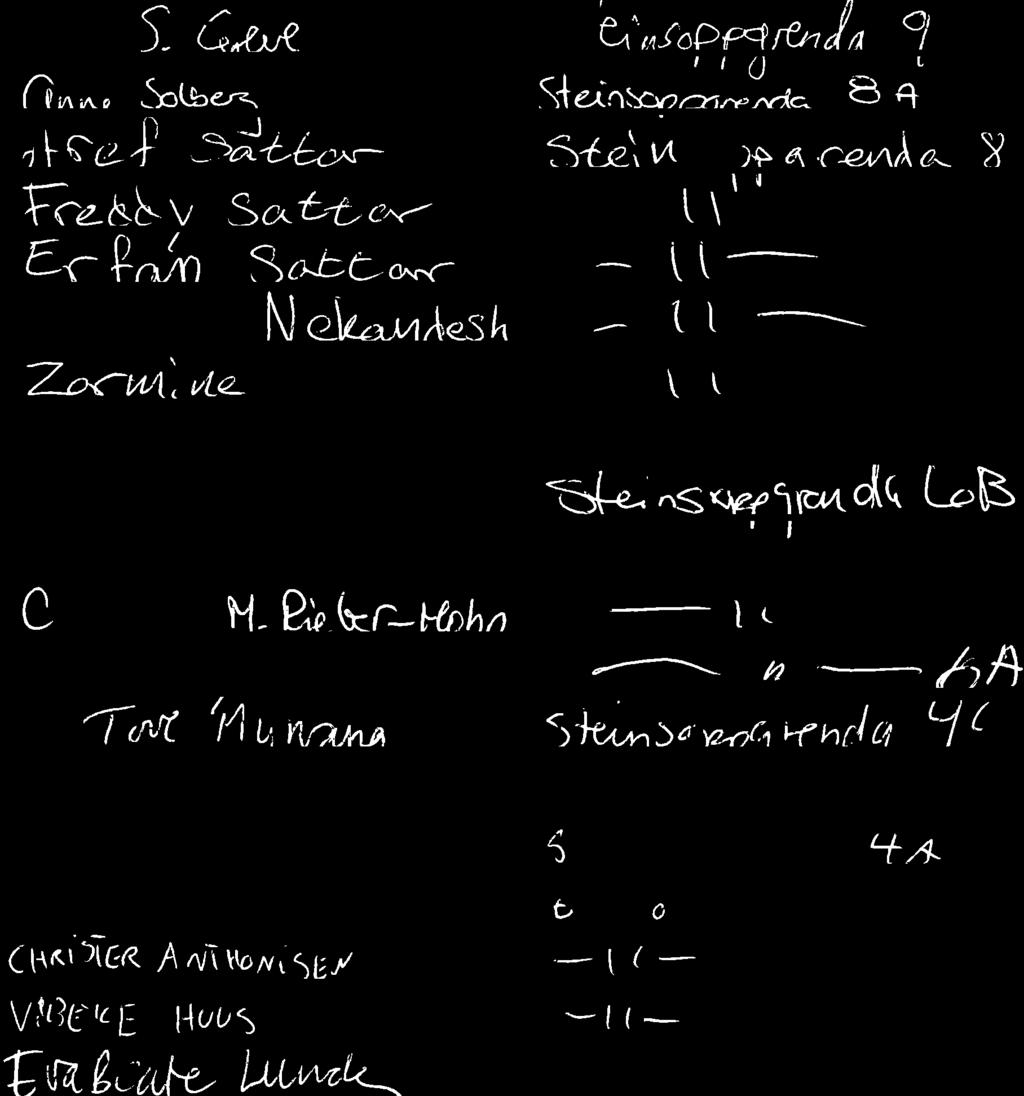 S. Greve einsoppgrenda 9
Anne Solberg Steinsoppgrenda 8A
Atref Sattar Stein grenda 8
Freddy Sattar "
Erfan Sattar - " -
Nekandesh - " -
Zarmine "
Steinsoppgrenda
C M. Rieber-Mohn - "
- " - A
Tove Steinsoppgrenda 4C
S 4A
t o
CHRISTER ANTHONISEN - " -
VIBEKE HUUS - " -
Eva Beate Lunde